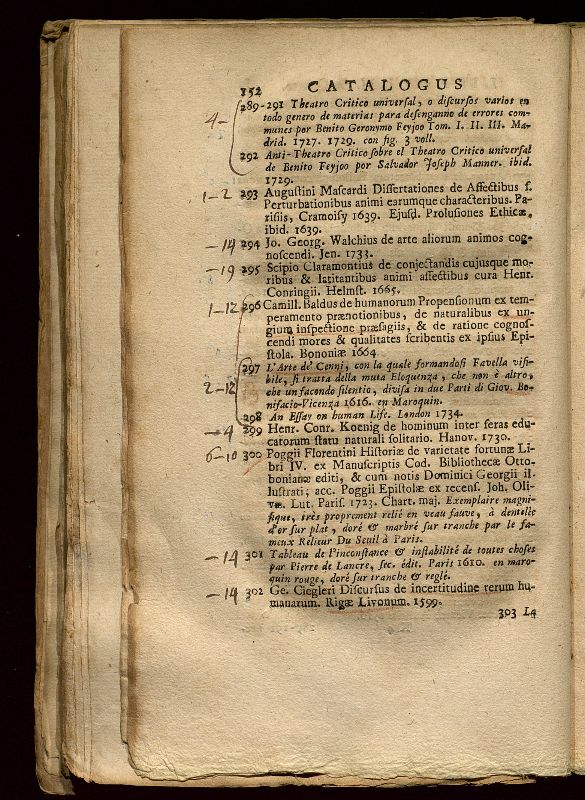 152 CATALOGUS
4 - 289-291 Theatro Critico universal, o discursos varios en
todo genero de materias para desenganno de errores com-
munes por Benito Geronymo Feyjoo Tom. I. II. III. Ma-
drid. 1727. 1729. con fig. 3 voll.
292 Anti-Theatro Critico sobre el Theatro Critico universal
de Benito Feyjoo por Salvador Joseph Manner. ibid.
1729.
1-2 293 Augustini Mascardi Dissertationes de Affectibus s.
Perturbationibus animi earumque characteribus. Pa-
risiis, Cramoisy 1639. Ejusd. Prolusiones Ethicæ,
ibid. 1639.
-14 294 Jo. Georg. Walchius de arte aliorum animos cog-
noscendi. Jen. 1733.
-19 295 Scipio Claramontius de conjectandis cujusque mo-
ribus & latitantibus animi affectibus cura Henr.
Conringii. Helmst. 1665.
1-12 296 Camill. Baldus de humanorum Propensionum ex tem-
peramento prænotionibus, de naturalibus ex un-
gium inspectione præsagiis, & de ratione cognos-
cendi mores & qualitates scribentis ex ipsius Epi-
stola. Bononiæ 1664.
297 L'Arte de' Cenni, con la quale formandosi Favella visi-
bile, si tratta della muta Eloquenza, che non è altro,
2-12 che un facondo silentio, divisa in due Parti di Giov. Bo-
nifacio-Vicenza 1616. en Maroquin.
298 An Essay on human Life. London 1734.
-4 299 Henr. Conr. Koenig de hominum inter feras edu-
catorum statu naturali solitario. Hanov. 1730.
6-10 300 Poggii Florentini Historiæ de varietate fortunæ Li-
bri IV. ex Manuscriptis Cod. Bibliothecæ Otto-
bonianæ editi, & cum notis Dominici Georgii il-
lustrati; acc. Poggii Epistolæ ex recens. Joh. Oli-
væ. Lut. Paris. 1723. Chart. maj. Exemplaire magni-
fique, très proprement relié en veau fauve, à dentelle
d'or sur plat, doré & marbré sur tranche par le fa-
meux Relieur Du Seuil à Paris.
-14 301 Tableau de l'inconstance & instabilité de toutes choses
par Pierre de Lancre, sec. édit. Paris 1610. en maro-
quin rouge, doré sur tranche & reglé.
-14 302 Ge. Ciegleri Discursus de incertitudine rerum hu-
manarum. Rigæ Livonum. 1599.
303 La